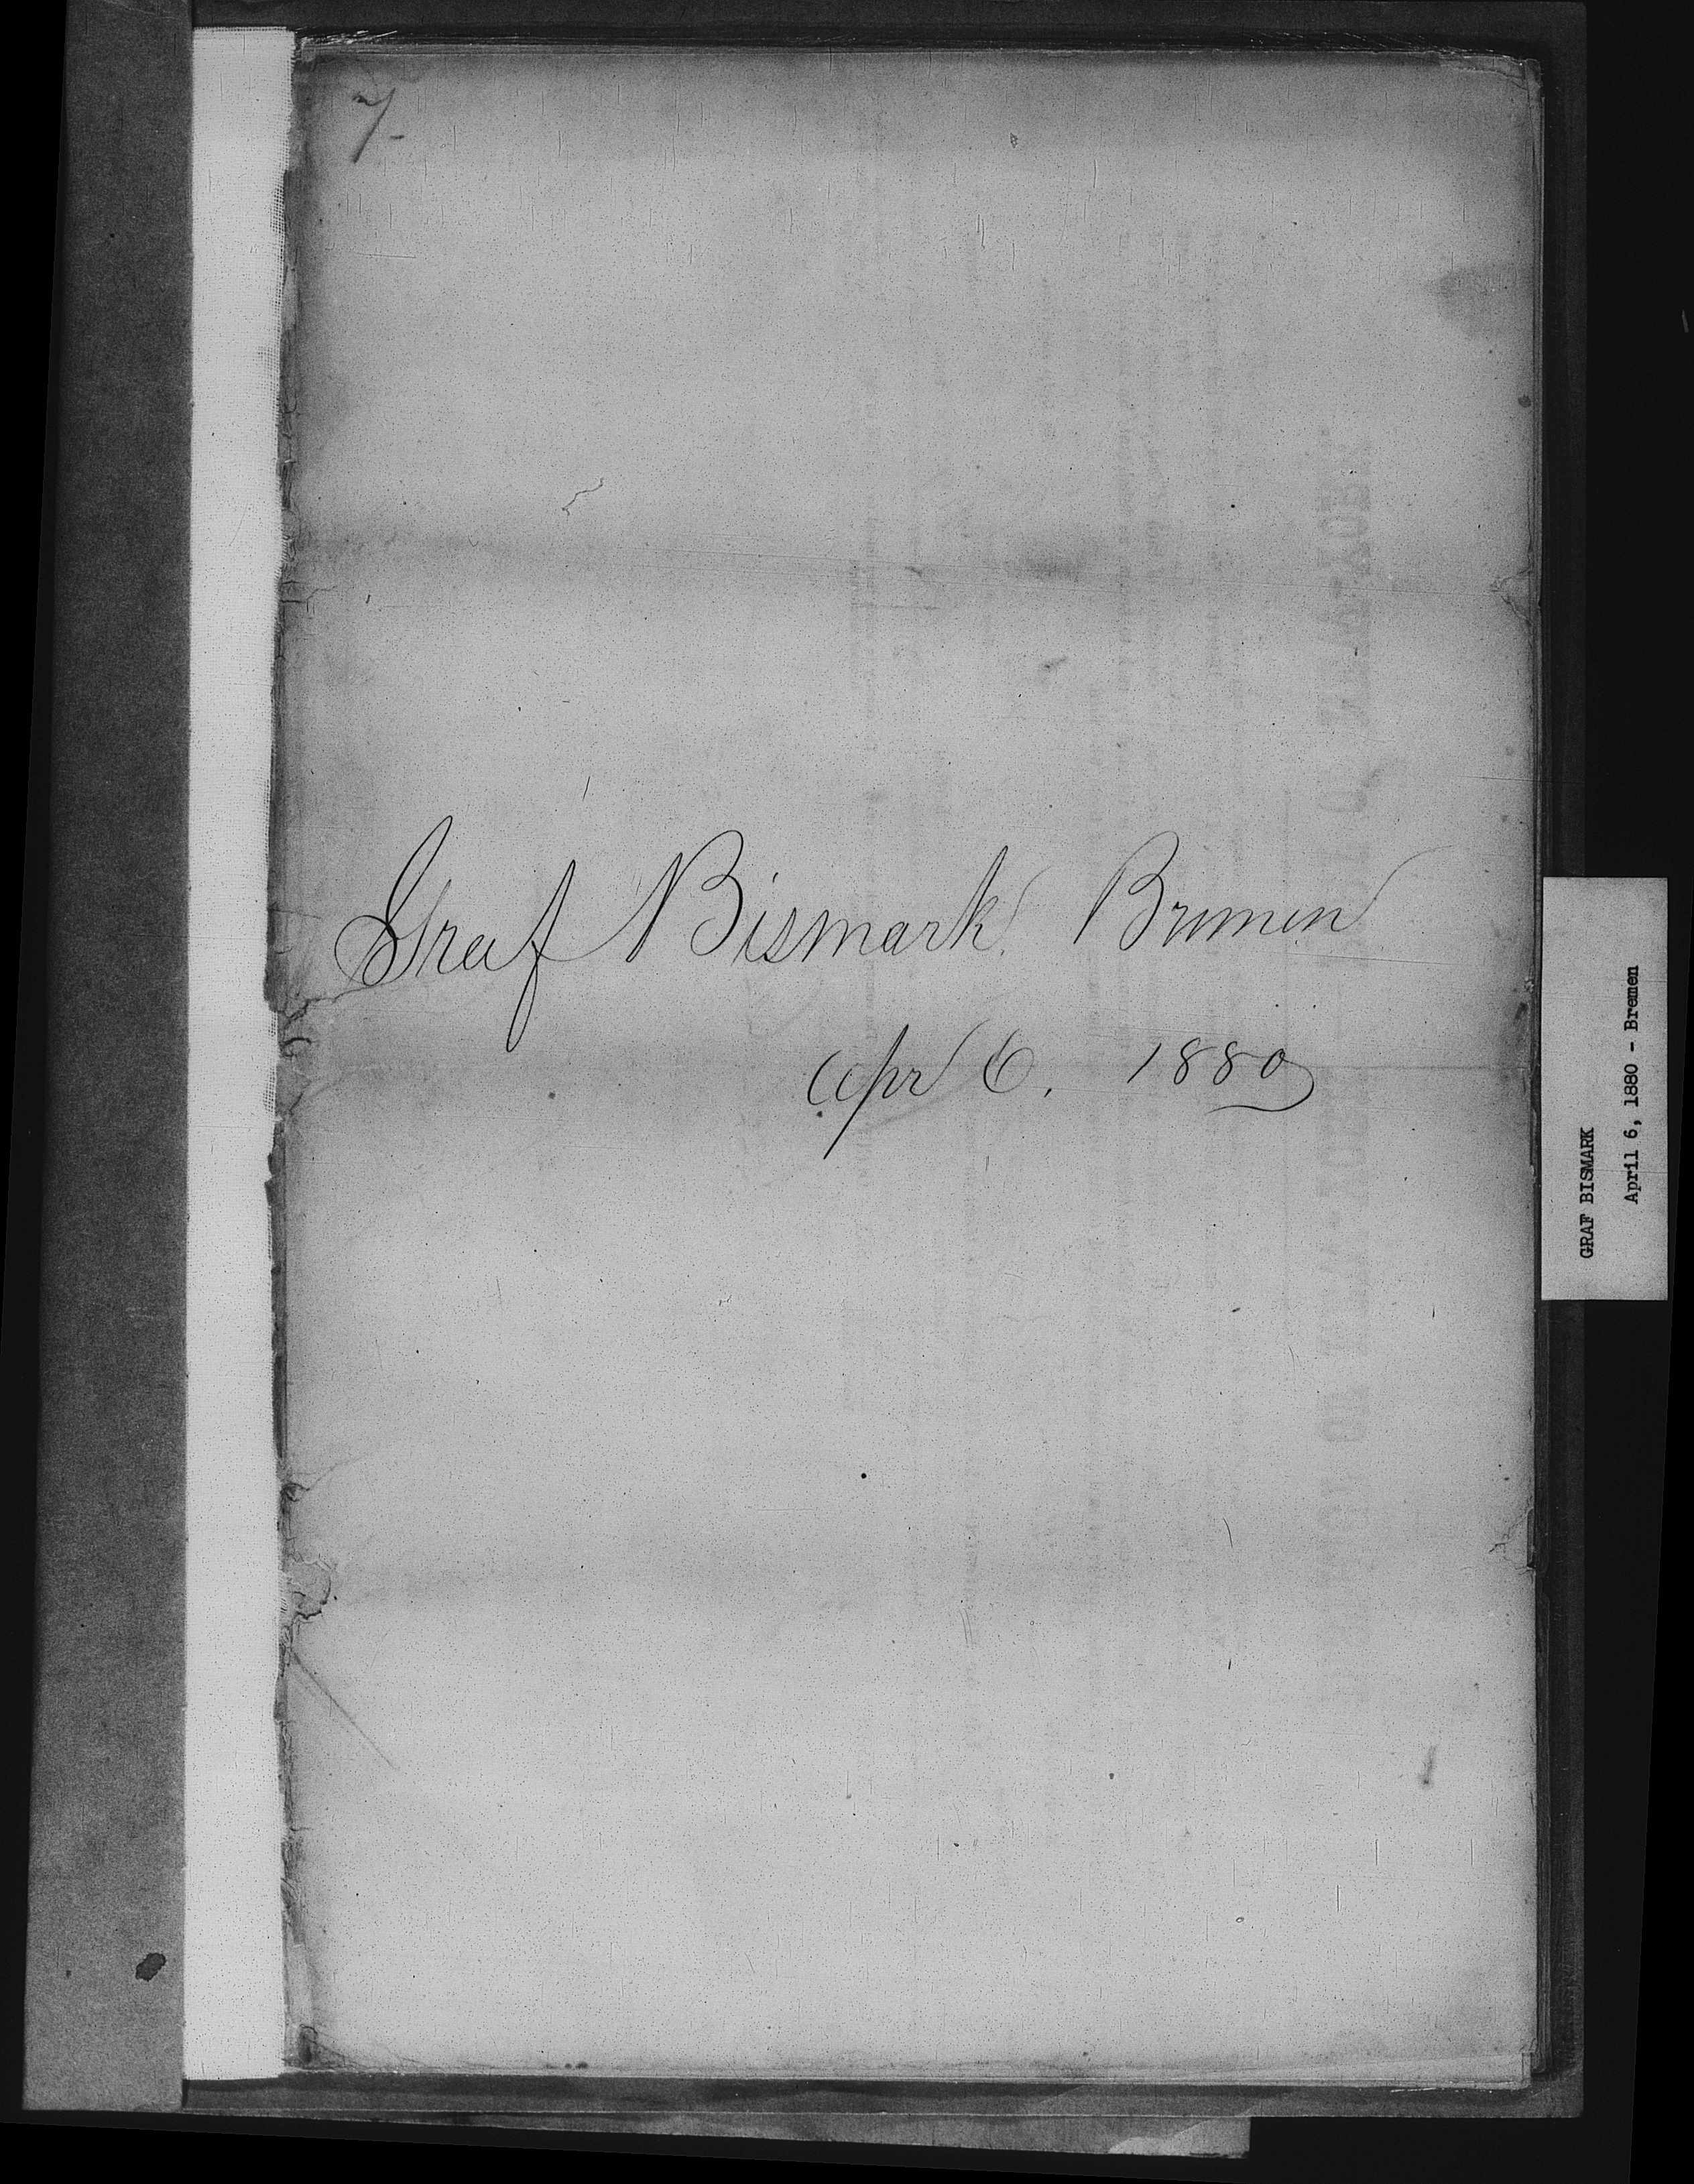 7
Graf Bismark Bremen
Apr 6. 1880
GRAF BISMARK
April 6, 1880 - Bremen